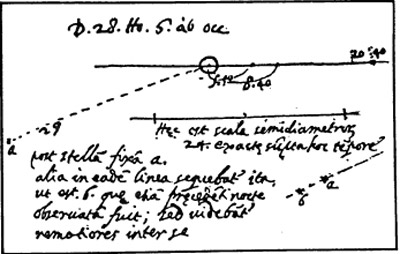 D. 28. Ho. 5. ab occ
20.40
5.10 D.40
29
a
Hec est scala semidiametrorum
24. exacte sumpta hoc tempore
post stellã fixã a.
alia in eadẽ linea sequebat ita,
ut est. b. que etiã precedẽti nocte
observata fuit; sed videbãt
remotiores inter se
a
b